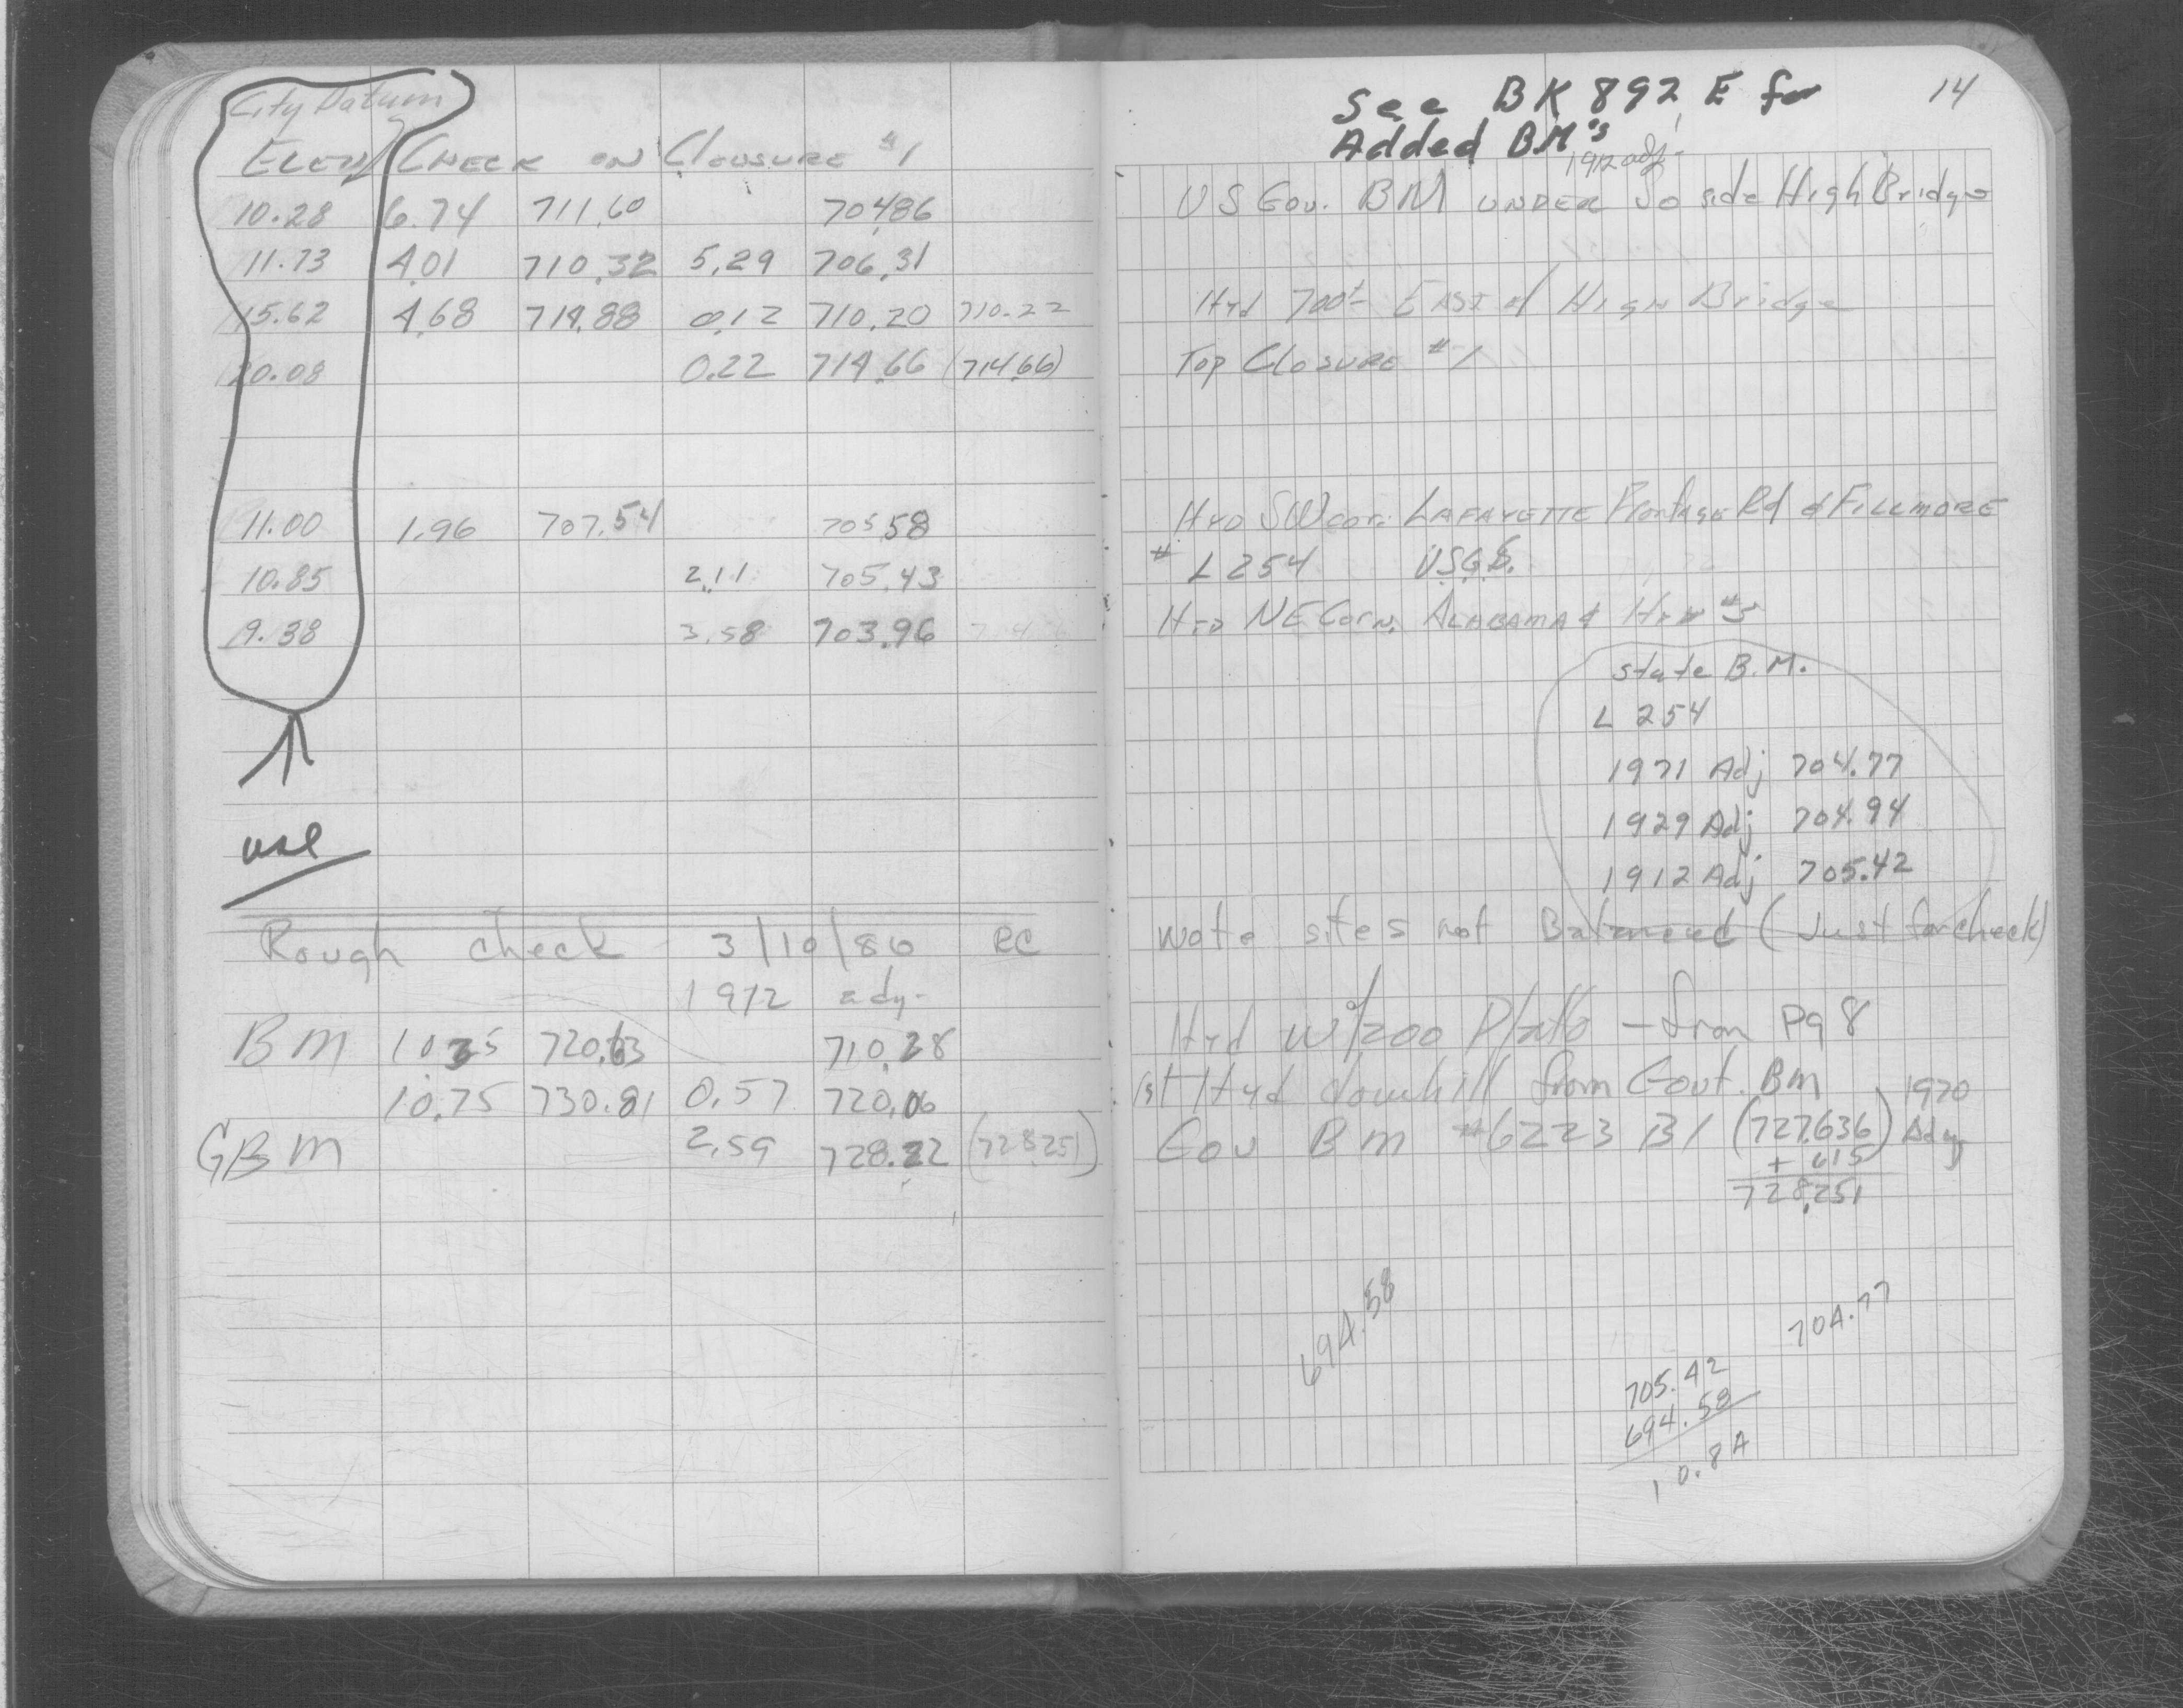 City Datum
Elev. Check on Closure #1
10.28 6.74 711.60 704.86
11.73 4.01 710.32 5.29 706.31
15.62 4.68 714.88 0.12 710.20 710.22
20.08 0.22 714.66 (714.66)
11.00 1.96 707.54 705.58
10.85 2.11 705.43
9.38 3.58 703.96
use
Rough check 3/10/80 RC
1912 adj.
BM 10.35 720.63 710.28
10.75 730.81 0.57 720.06
GBM 2.59 728.22 (728.251)
14
See BK 892 E for
Added BM's
1912 adj.
US Gov. BM under So side High Bridge
Hyd 700± East of High Bridge
Top Closure #1
Hyd SW cor. Lafayette Frontage Rd & Fillmore
# L 254 USGS.
Hyd NE Corn. Alabama & Hwy #3
State B.M.
L 254
1971 Adj 704.77
1929 Adj 704.94
1912 Adj 705.42
Note sites not Balanced (Just for check)
Hyd W/200 Plato - from Pg 8
1st Hyd downhill from Govt. Bm
Gov Bm #6223 B1 (727.636) 1970 Adj
+ 615
728.251
694.58
704.77
705.42
694.58
10.84